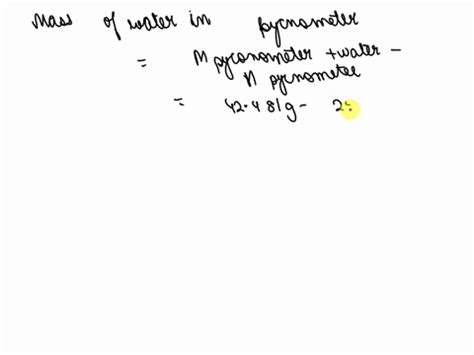 Mass of water in pycnometer
= M pyconometer + water -
M pycnometer
= 42.481g - 2